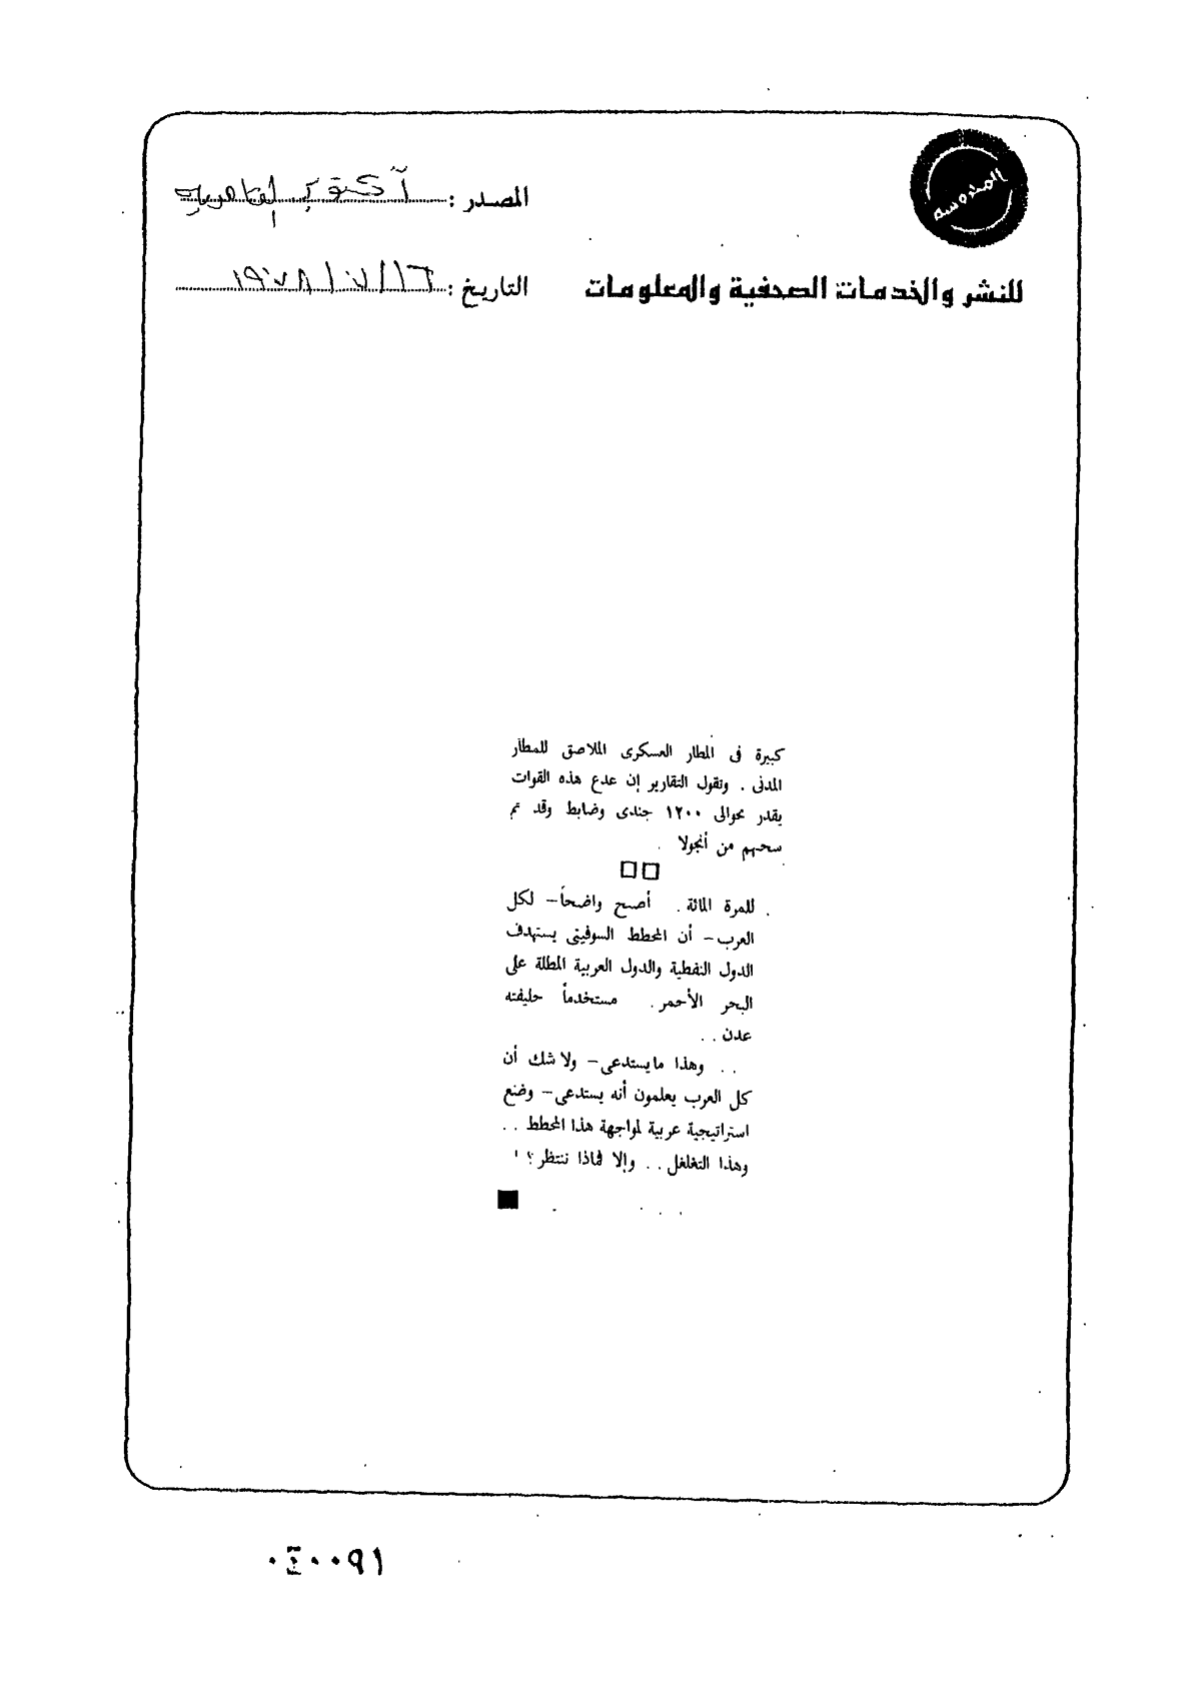 المحروسة
المصدر : أكتوبر القاهرية
للنشر والخدمات الصحفية والمعلومات
التاريخ : ١٦ / ٧ / ١٩٧٨
كبيرة فى المطار العسكرى الملاصق للمطار
المدنى . وتقول التقارير إن عدع هذه القوات
يقدر بحوالى ١٢٠٠ جندى وضابط وقد تم
سحبهم من أنجولا .
. للمرة المائة . أصبح واضحاً – لكل
العرب – أن المخطط السوفيتى يستهدف
الدول النفطية والدول العربية المطلة على
البحر الأحمر . مستخدماً حليفته
عدن . .
. . وهذا مايستدعى – ولا شك أن
كل العرب يعلمون أنه يستدعى – وضع
استراتيجية عربية لمواجهة هذا المخطط . .
وهذا التغلغل . . وإلا فماذا ننتظر ؟ !